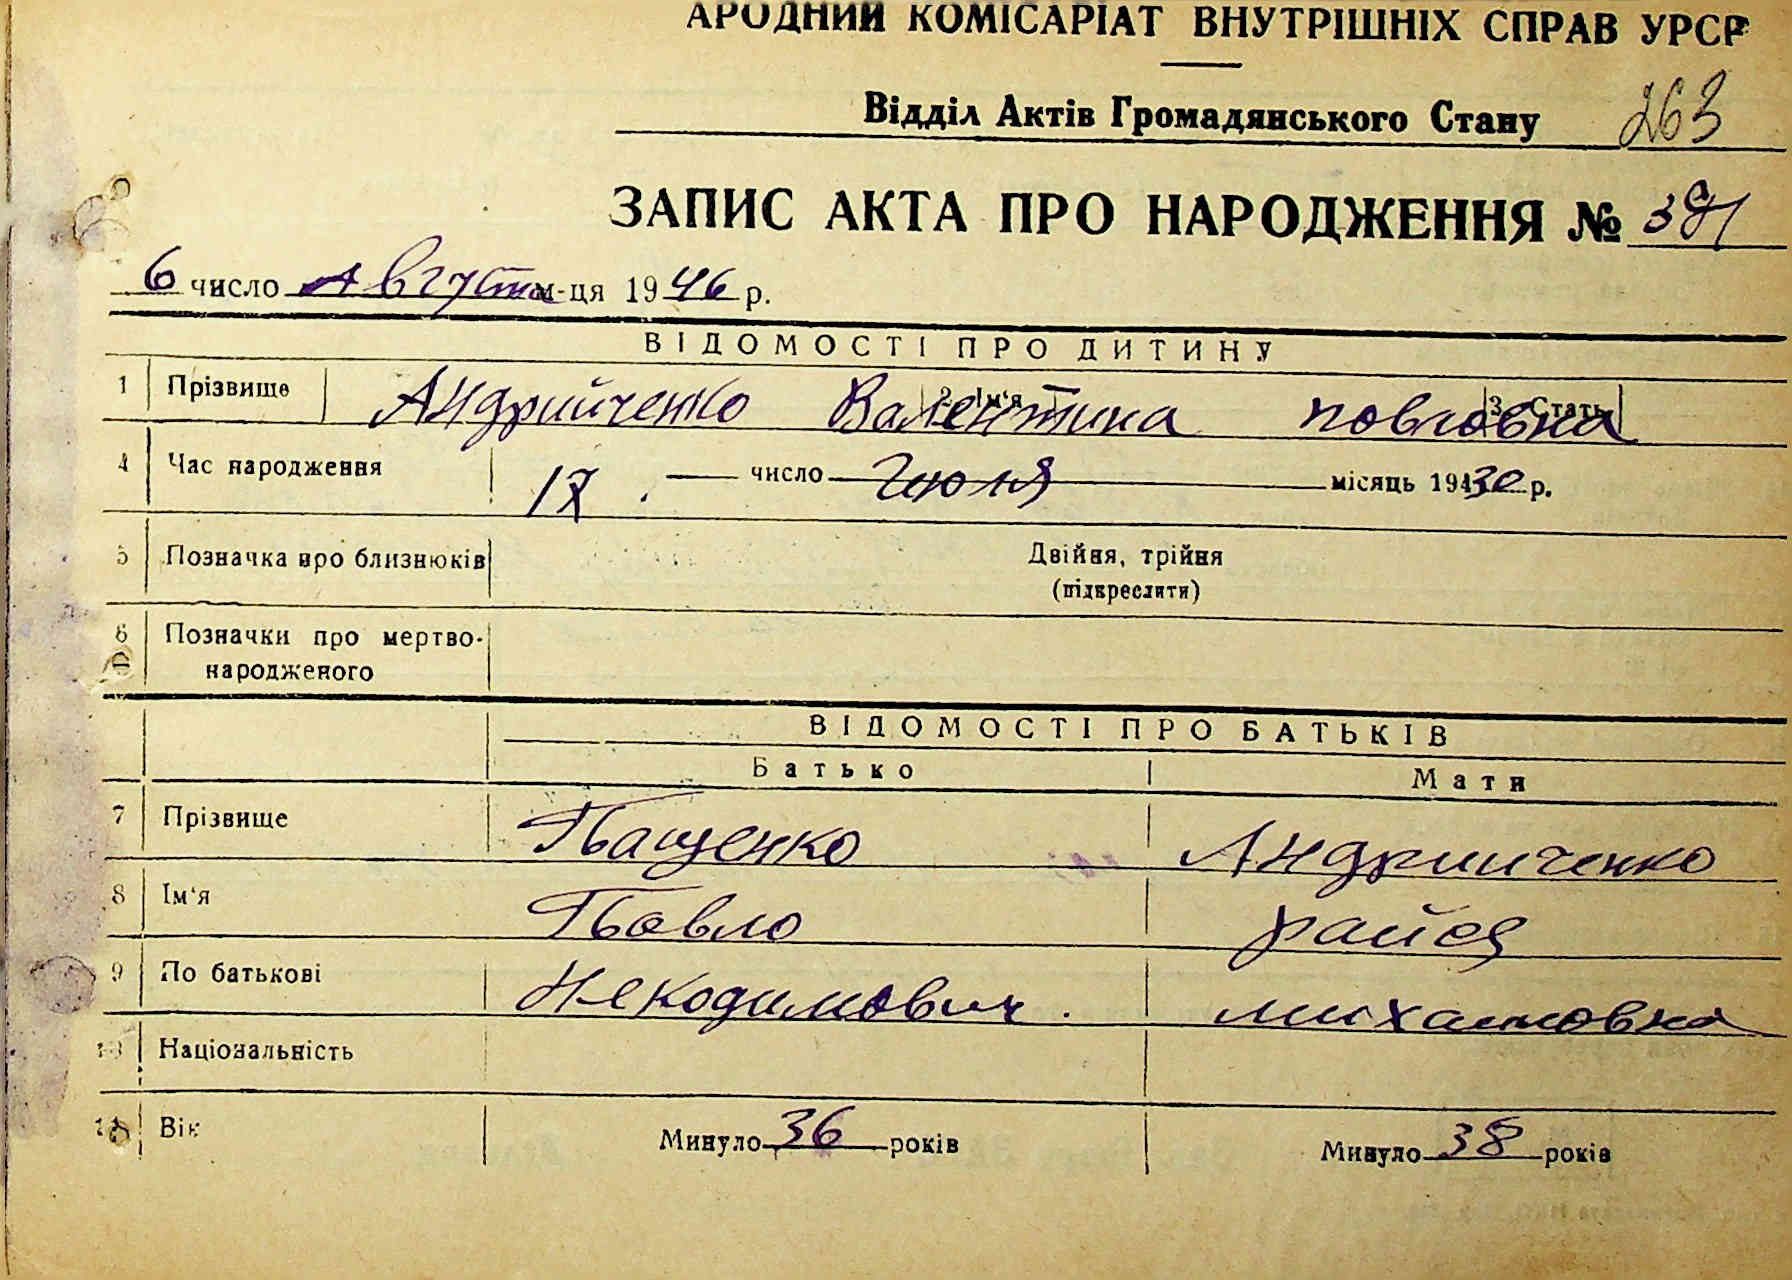 АРОДНИЙ КОМІСАРІАТ ВНУТРІШНІХ СПРАВ УРСР
Відділ Актів Громадянського Стану 263
ЗАПИС АКТА ПРО НАРОДЖЕННЯ №
6 число Августа м-ця 1946 р.
ВІДОМОСТІ ПРО ДИТИНУ
1 Прізвище Андрийченко 2. Ім'я Валентина 3. Стать Повловна
4 Час народження 17 число Июля місяць 19430 р.
5 Позначка про близнюків Двійня, трійня
(підкреслити)
6 Позначки про мертво-
народженого
ВІДОМОСТІ ПРО БАТЬКІВ
Батько Мати
7 Прізвище Пащенко Андрийченко
8 Ім'я Павло Райся
9 По батькові Никодимович. Михаиловна
10 Національність
11 Вік Минуло 36 років Минуло 38 років